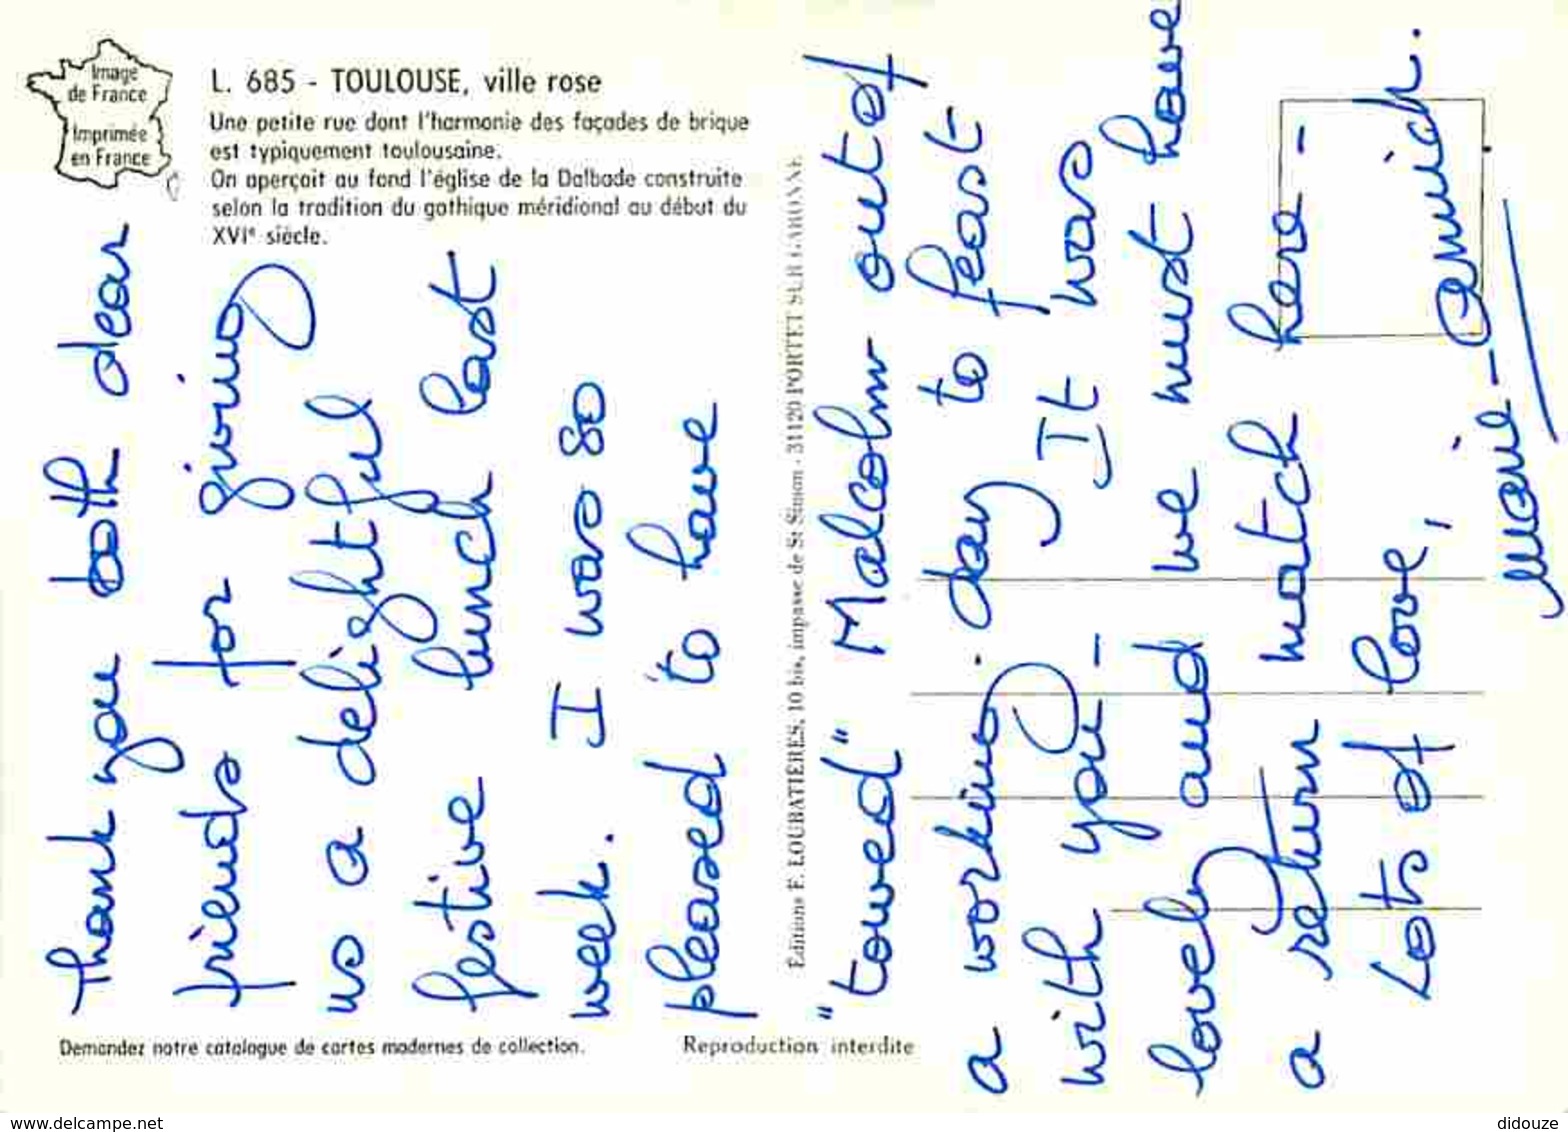 Image
de France
Imprimée
en France
L. 685 - TOULOUSE, ville rose
Une petite rue dont l'harmonie des façades de brique
est typiquement toulousaine.
On aperçoit au fond l'église de la Dalbade construite
selon la tradition du gothique méridional au début du
XVIe siècle.
Thank you both dear
friends for giving
us a delightful
festive lunch last
week. I was so
pleased "to have
Editions F. LOUBATIÈRES, 10 bis, impasse de St Simon - 31120 PORTET SUR GARONNE
"towed" Malcolm out of
a working day to feast
with you - It was
lovely and we must have
a return match here -
Lots of love,
Marie-
Demandez notre catalogue de cartes modernes de collection.
Reproduction interdite
www.delcampe.net
didouze